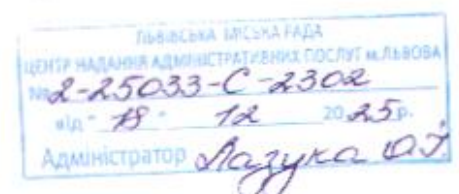 ЛЬВІВСЬКА МІСЬКА РАДА
ЦЕНТР НАДАННЯ АДМІНІСТРАТИВНИХ ПОСЛУГ м.ЛЬВОВА
№ 2-25033-С-2302
від " 18 " 12 2025 р.
Адміністратор Лазука О.І.